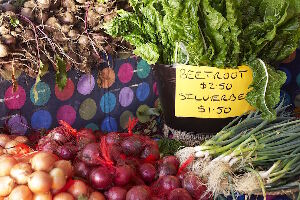 BEETROOT
$2.50
SILVERBE
$1.50